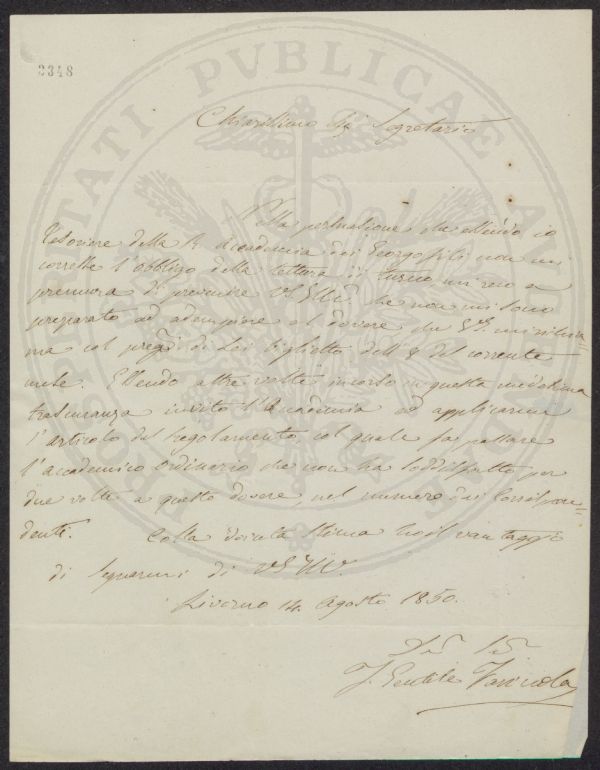 2348
PROSPERITATI PVBLICAE AVGENDAE
Chiarissimo Sig. Segretario
Nella persuasione che essendo io
Tesoriere della R. Accademia dei Georgofili non mi
corresse l'obbligo della lettura di turno mi reco a
premura di prevenire VS Illma che non mi sono
preparato ad adempiere al dovere che mi
ma col preg. di Lei biglietto dell' 8 del corrente
mese. Essendo altre volte incorso in questa medesima
trascuranza invito l'Accademia ad applicarmi
l'articolo del regolamento, col quale fa passare
l'accademico Ordinario che non ha soddisfatto per
due volte a questo dovere, nel numero dei Corrispon=
denti. Colla dovuta stima ho il vantaggio
di segnarmi di VS Illma
Livorno 14 Agosto 1850.